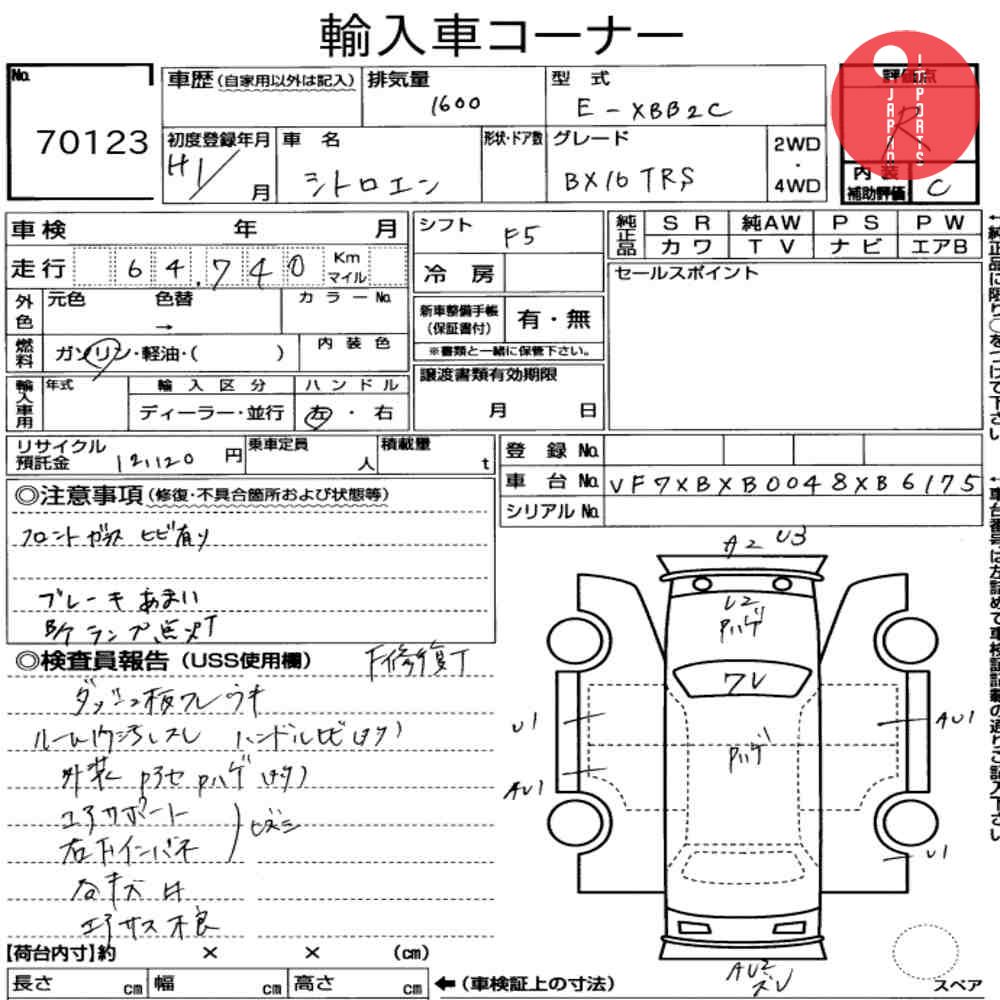 輸入車コーナー
No.
70123
車歴 (自家用以外は記入)
排気量
1600
型 式
E-XBB2C
評価点
R
JAPAN
IMPORTS
初度登録年月
H1/ 月
車 名
シトロエン
形状・ドア数
グレード
BX16 TRS
2WD
・
4WD
内 装
補助評価
C
車検 年 月
走行 64.740 Km
マイル
外色
元色 色替
→
カラーNo.
燃料
ガソリン・軽油・( )
内装色
輸入車用
年式
輸入区分
ディーラー・並行
ハンドル
左・右
シフト
F5
冷 房
新車整備手帳
(保証書付)
有・無
※書類と一緒に保管下さい。
譲渡書類有効期限
月 日
純正品
SR 純AW PS PW
カワ TV ナビ エアB
セールスポイント
←純正品に限り○をつけて下さい
リサイクル
預託金
121120 円
乗車定員
人
積載量
t
登 録 No.
車 台 No. VF7XBXB0048XB6175
シリアルNo.
◎注意事項 (修復・不具合箇所および状態等)
フロントガラス ヒビ有り
ブレーキあまい
B/Kランプ点灯
◎検査員報告 (USS使用欄)
F修復了
ダッシュ板ワレ ウキ
ルーム内汚レスレ
外装
エアサポート
右下インパネ
エアサス不良
A2 U3
Pハゲ
ワレ
Pハゲ
U1
AU1
AU1
U1
AU2
ズレ
スペア
【荷台内寸】約 × × (cm)
長さ cm 幅 cm 高さ cm
←(車検証上の寸法)
←車台番号は左詰めで車検証記載の通りご記入下さい